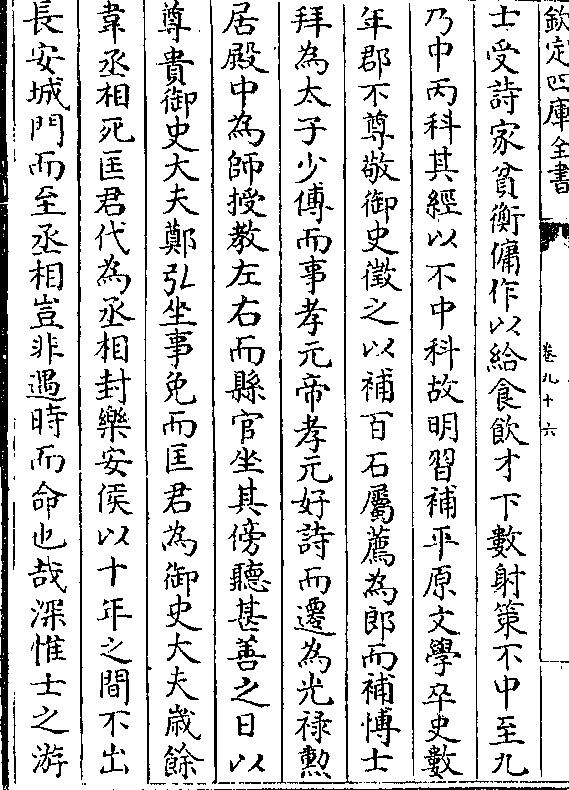 欽定四庫全書
卷九十六
士受詩家貧衡傭作以給食飲才下數射策不中至九
乃中丙科其經以不中科故明習補平原文學卒史數
年郡不尊敬御史徵之以補百石屬薦為郎而補博士
拜為太子少傅而事孝元帝孝元好詩而遷為光禄勲
居殿中為師授教左右而縣官坐其傍聽甚善之日以
尊貴御史大夫鄭弘坐事免而匡君為御史大夫歲餘
韋丞相死匡君代為丞相封樂安侯以十年之間不出
長安城門而至丞相豈非遇時而命也哉深惟士之游